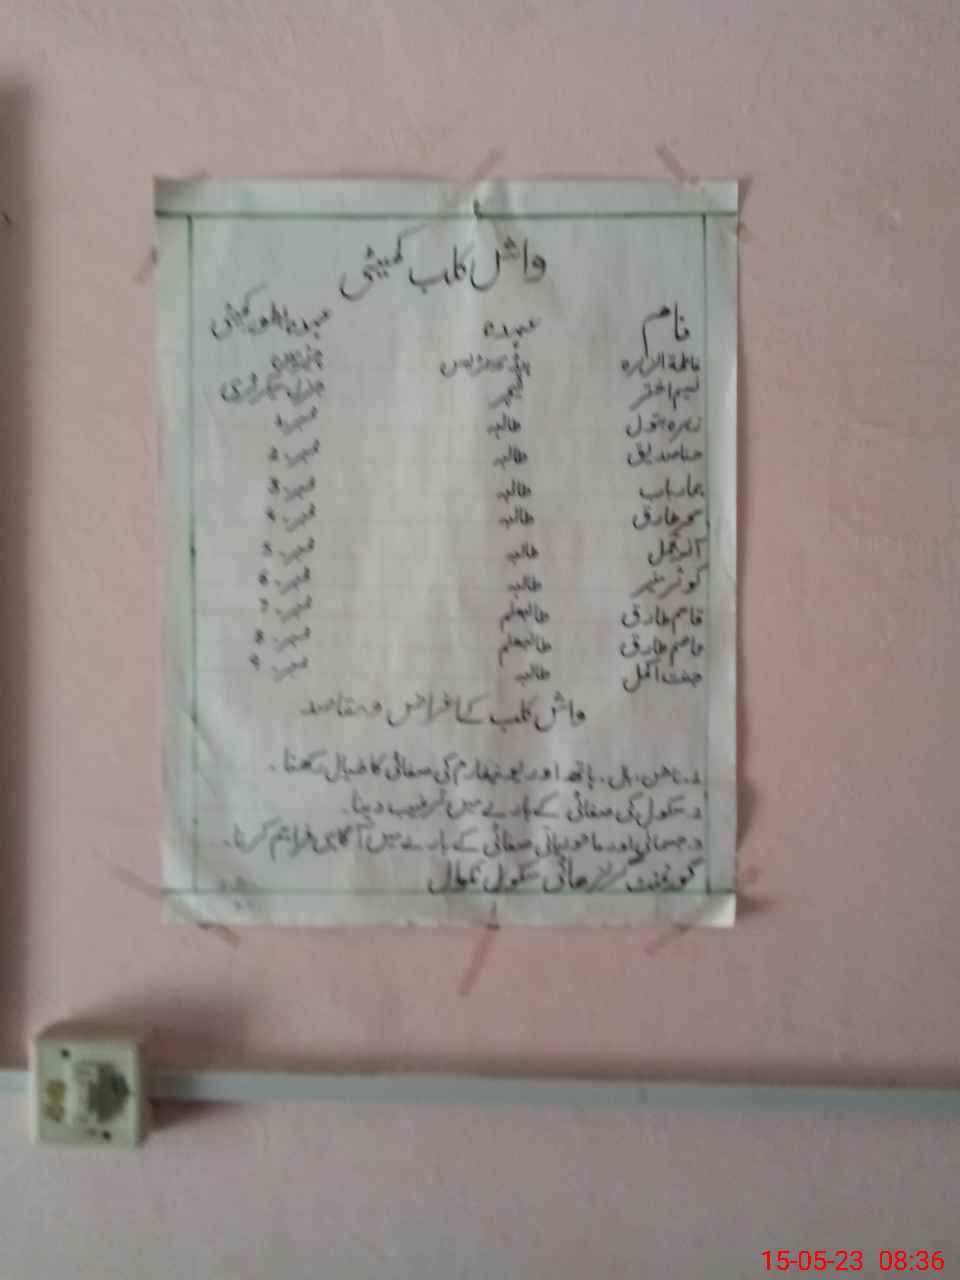 واش کلب کمیٹی
نام عہدہ عہدہ بطور کمیٹی
فاطمۃ الزہرہ ہیڈ مسٹریس چئیرمین
نسیم اختر ٹیچر جنرل سیکرٹری
زہرہ بتول طالبہ ممبر 1
حنا صدیق طالبہ ممبر 2
طالبہ ممبر 3
سحر طارق طالبہ ممبر 4
طالبہ ممبر 5
کوثر منیر طالبہ ممبر 6
قاسم طارق طالبعلم ممبر 7
عاصم طارق طالبعلم ممبر 8
جنت اکمل طالبہ ممبر 9
واش کلب کے فرائض و مقاصد
ناخن، بال، ہاتھ اور یونیفارم کی صفائی کا خیال رکھنا۔
سکول کی صفائی کے بارے میں ترغیب دینا۔
جسمانی اور ماحولیاتی صفائی کے بارے میں آگاہی فراہم کرنا۔
گورنمنٹ گرلز ھائی سکول
15-05-23 08:36